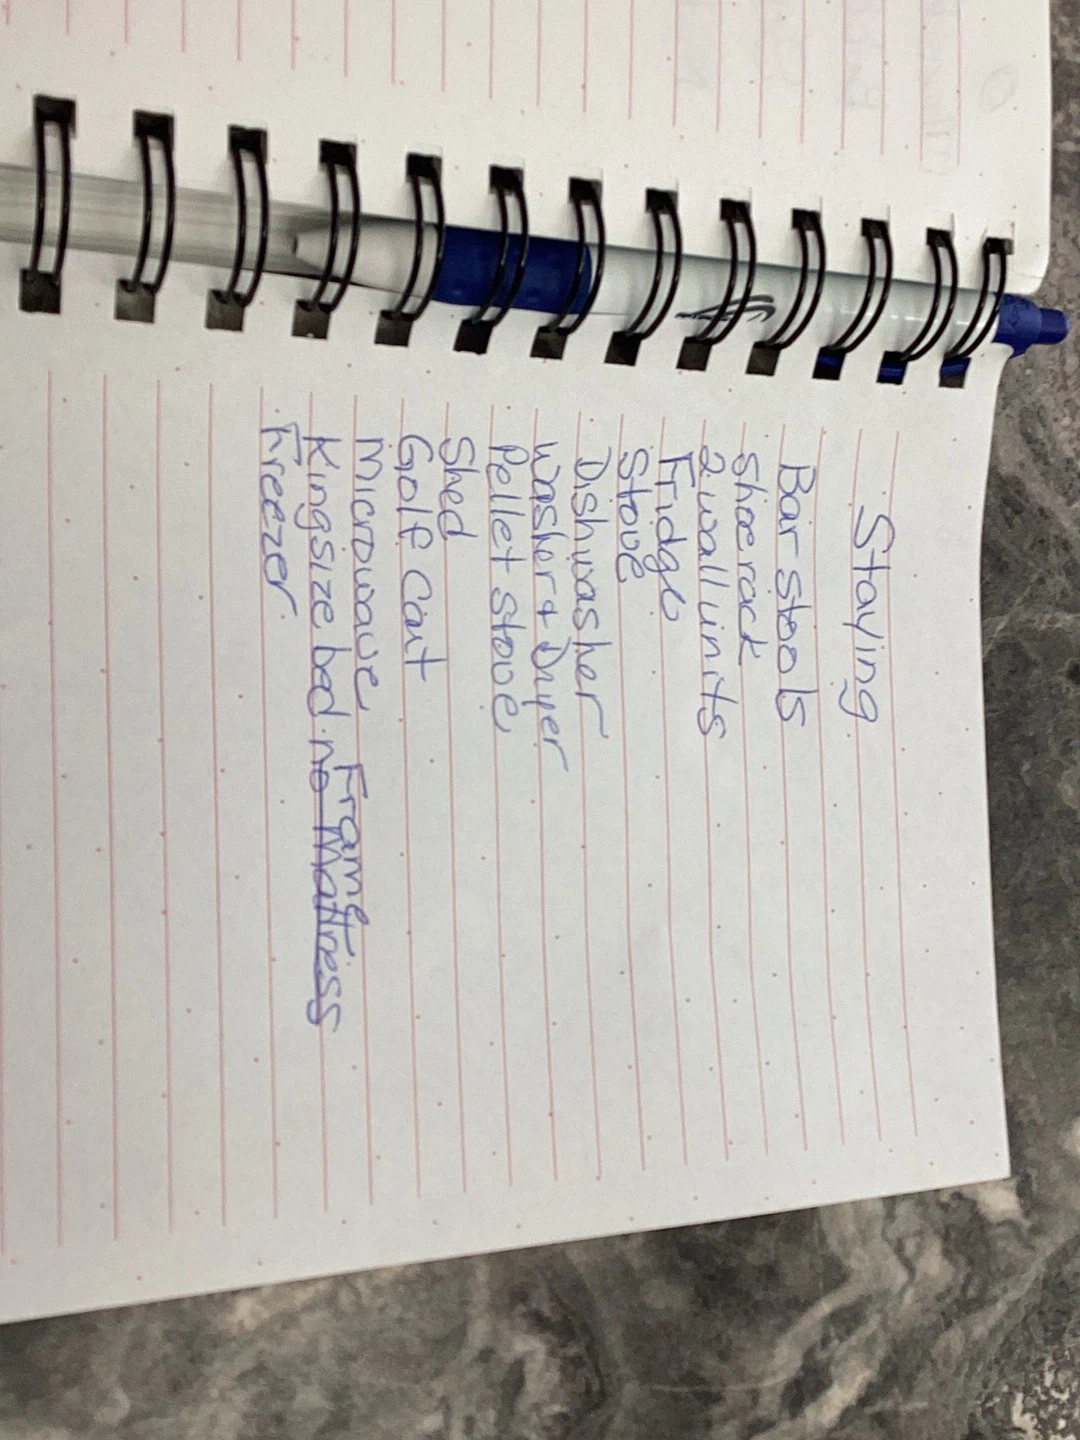 Staying
Bar stools
Shoe rack
2 wall units
Fridge
Stove
Dishwasher
Washer + Dryer
Pellet stove
Shed
Golf Cart
Microwave
Frame
Kingsize bed no mattress
Freezer